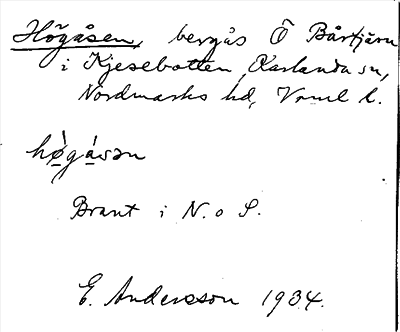 Högåsen, bergås Ö Bårtjärn
i Kjesebotten, Karlanda sn,
Nordmarks hd, Vrml l.
hø̀gåsən
Brant i N. o S.
E. Andersson 1934.